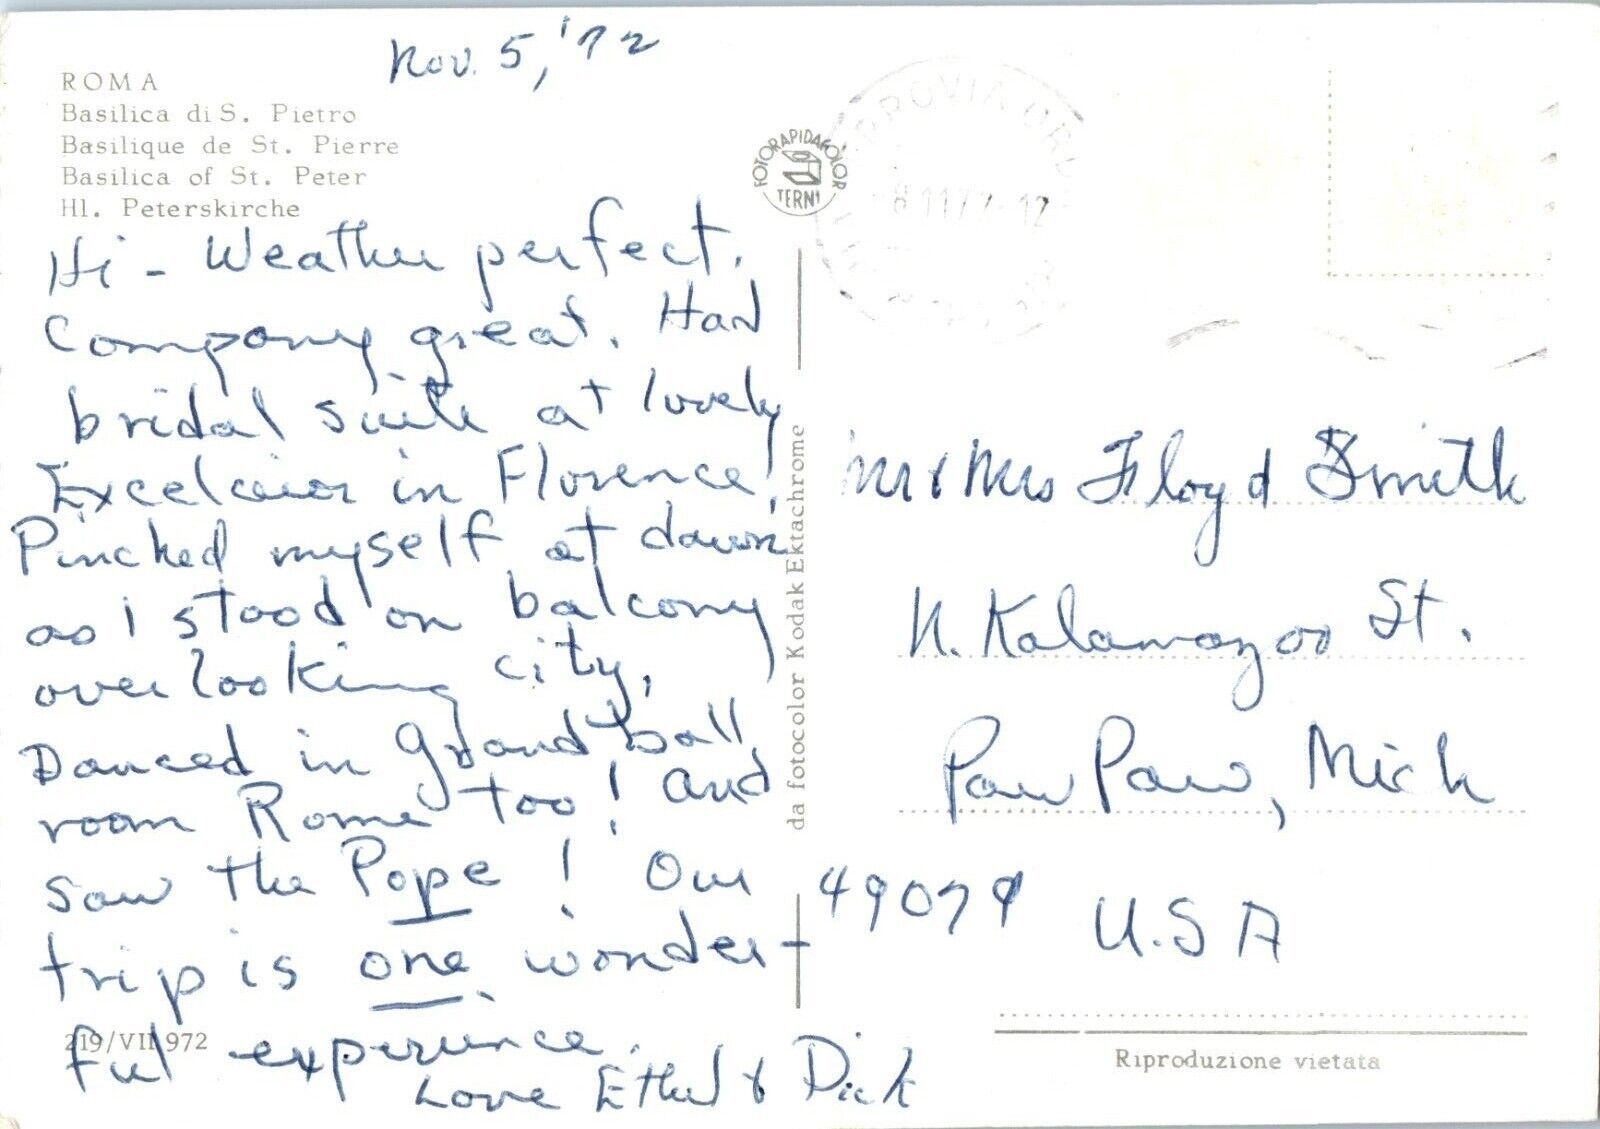 Nov. 5, '72
ROMA
Basilica di S. Pietro
Basilique de St. Pierre
Basilica of St. Peter
Hl. Peterskirche
Hi - Weather perfect.
Company great. Had
bridal suite at lovely
Excelcior in Florence!
Pinched myself at dawn
as I stood on balcony
overlooking city.
Danced in grand ball
room Rome too! and
saw the Pope! Our
trip is one wonder-
ful experience.
Love Ethel & Dick
219/VII 972
FOTORAPIDACOLOR
TERNI
da fotocolor Kodak Ektachrome
8 11 72-12
Mr & Mrs Floyd Smith
N. Kalamazoo St.
Paw Paw, Mich
49079 U.S A
Riproduzione vietata